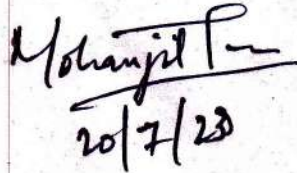 Mohanjit
20/7/23